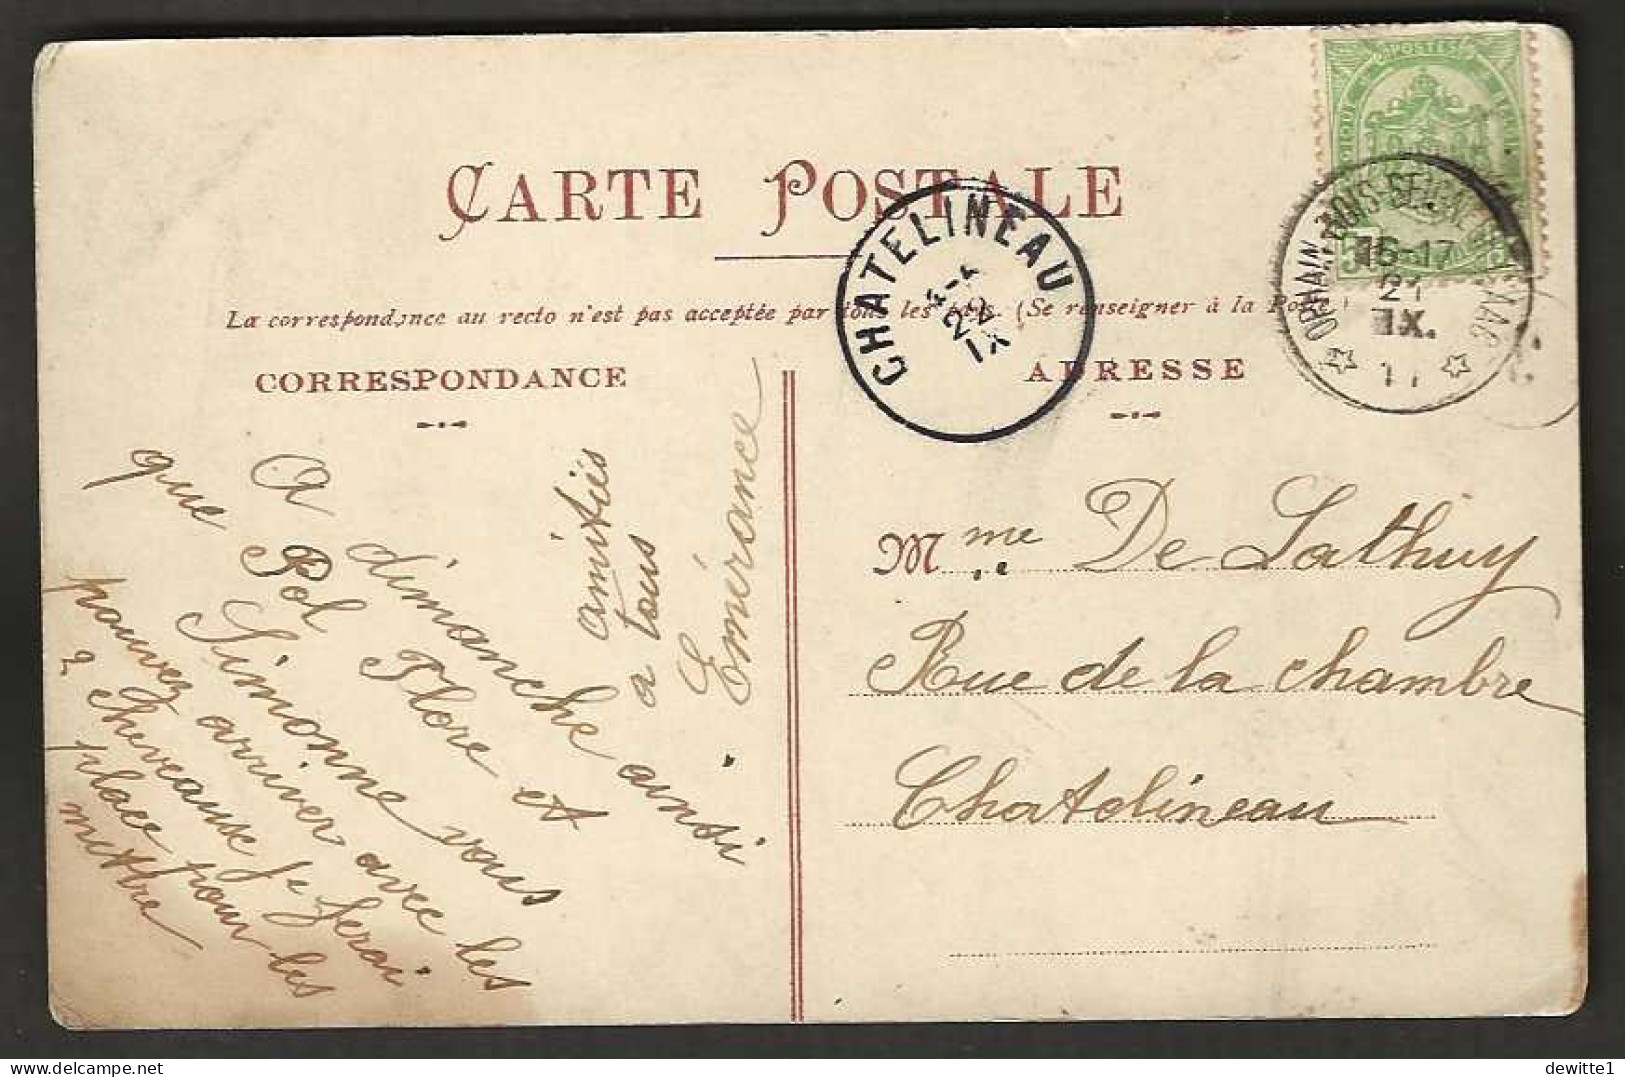 CARTE POSTALE
La correspondance au recto n'est pas acceptée par tous les pays. (Se renseigner à la Poste)
CORRESPONDANCE
ADRESSE
CHATELINEAU
22
IX
POSTES
16-17
21
IX.
11
A dimanche ainsi
que Pol Flore et
Simonne vous
pouvez arriver avec les
2 Cheveaux je ferai
place pour les
mettre
amitiés
a tous
Emérance
Mme De Lathuy
Rue de la Chambre
Chatelineau
dewitte1